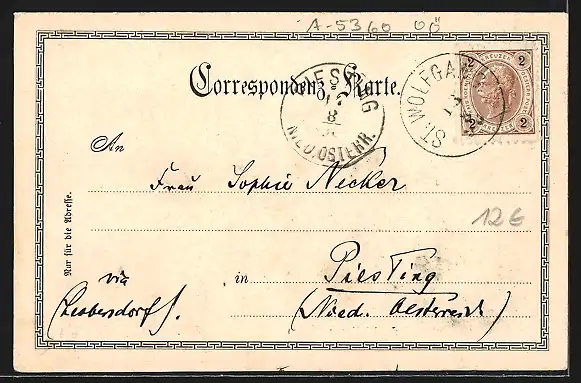 A-5360 OÖ
Correspondenz-Karte.
PIESTING
17
8
NIED. ÖSTERR.
ST. WOLFGANG
2 KREUZER 2
2 KREUZER 2
An
Frau Sophie Necker
12€
Nur für die Adresse.
via in Piesting
(Leobersdorf). (Nied. Oesterreich)